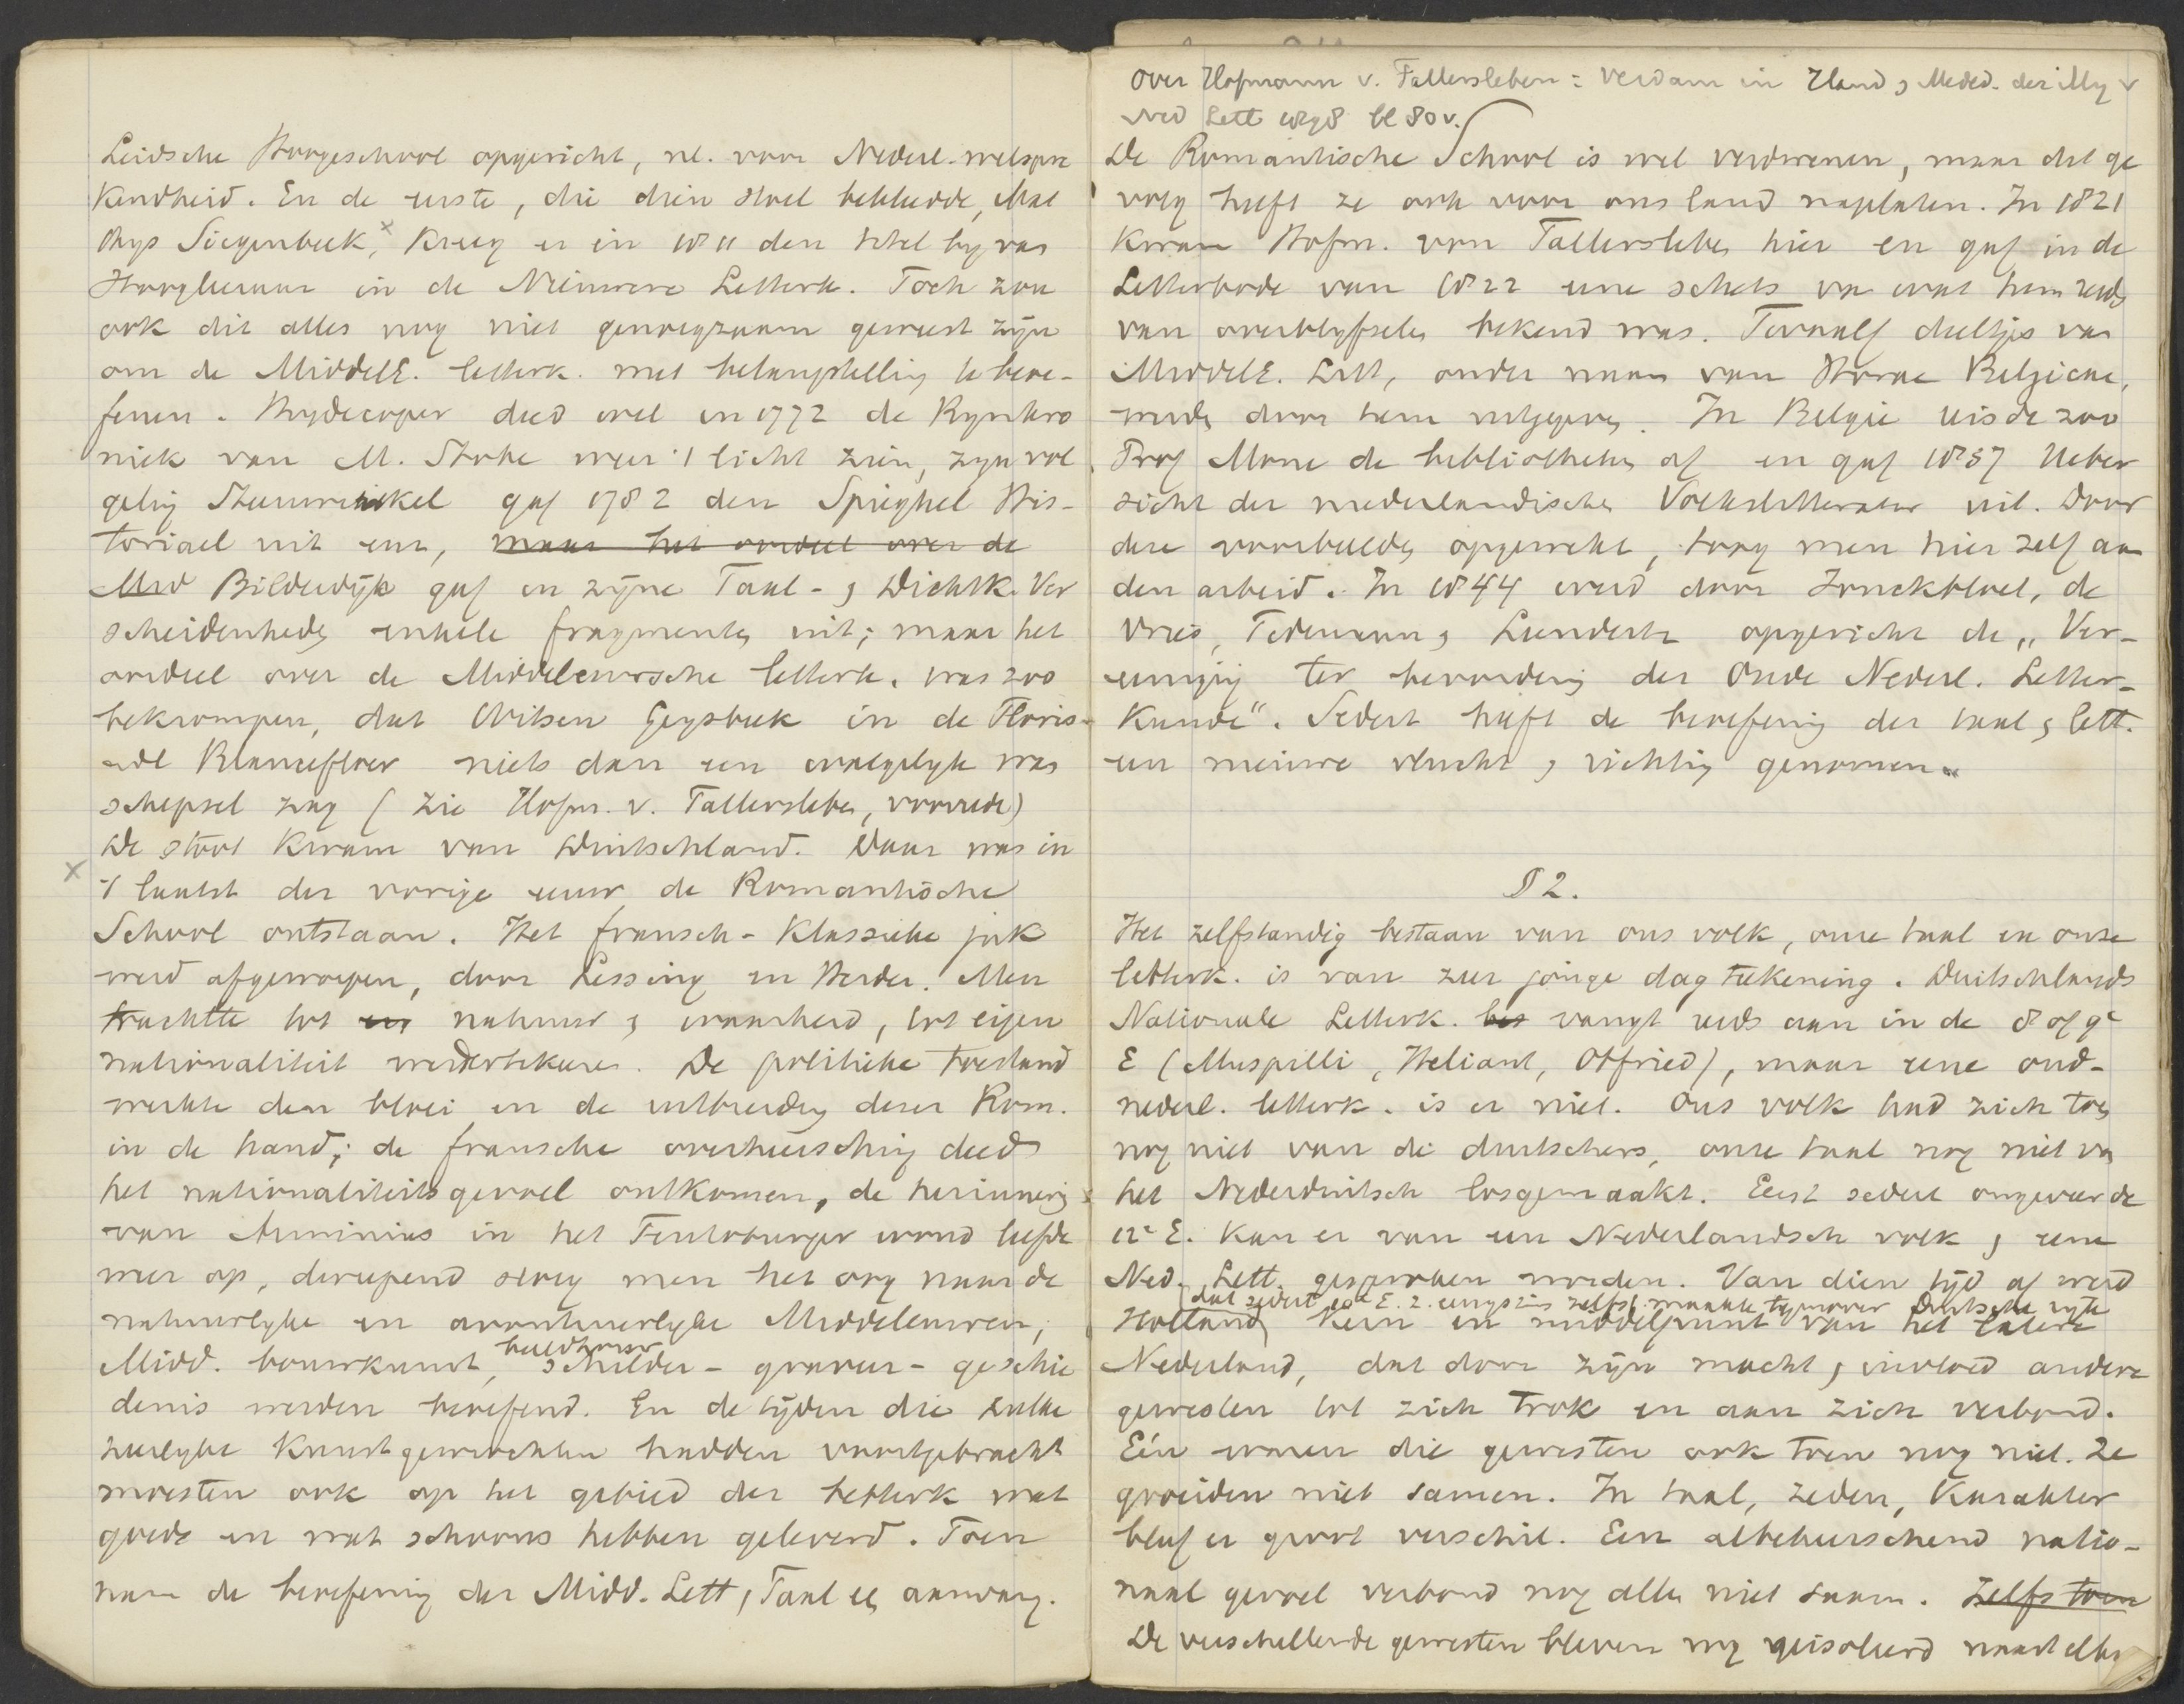 Leidsche Hoogeschool opgericht, nl. voor Nederl. welspre
kendheid. En de eerste, die dien stoel bekleedde, Mat
thys Siegenbeek, x kreeg er in 1811 den titel by van
Hoogleeraar in de Nieuwere Letterk. Toch zou
ook dit alles nog niet genoegzaam geweest zijn
om de MiddelE. letterk. met belangstelling te beoe-
fenen. Huydecoper deed wel in 1772 de Rymkro
niek van M. Stoke weer 't licht zien, zyn vol
geling Steenwinkel gaf 1782 den Spieghel His-
toriael uit en, maar het oordeel over de
Med Bilderdijk gaf in zijne Taal- & Dichtk. Ver
scheidenheden enkele fragmenten uit; maar het
oordeel over de Middeleeuwsche letterk. was zoo
bekrompen, dat Witsen Geysbeek in de Floris
ende Blancefloer niets dan een walgelyk was
schepsel zag (Zie Hofm. v. Fallersleben, voorrede)
De stoot kwam van Duitschland. Daar was in
x 't laatst der vorige eeuw de Romantische
School ontstaan. Het fransch-klassieke juk
werd afgeworpen, door Lessing en Herder. Men
trachtte tot en natuur & waarheid, tot eigen
nationaliteit weder te keeren. De politieke toestand
werkte den bloei en de uitbreiding dezer Rom.
in de hand; de fransche overheersching deed
het nationaliteitsgevoel ontkomen, de herinnering
van Arminius in het Teutoburger woud leefde
weer op, dwepend sloeg men het oog naar de
natuurlyke en avontuurlyke Middeleeuwen;
Midd. bouwkunst, beeldhouw schilder- graveer- geschie
denis werden beoefend. En de tijden die zulke
heerlyke kunstgewrochten hadden voortgebracht
moesten ook op het gebied der letterk wat
goeds en wat schoons hebben geleverd. Toen
nam de beoefening der Midd. Lett & Taal een aanvang.
Over Hofmann v. Fallersleben: Verdam in Hand & Meded. der Mij v
Ned Lett 1898 bl 80 v.
De Romantische School is wel verdwenen, maar dat ge
volg heeft ze ook voor ons land nagelaten. In 1821
kwam Hofm. von Fallersleben hier en gaf in de
Letterbode van 1822 eene schets van wat hem reeds
van overblyfselen bekend was. Twaalf deeltjes van
MiddelE. Lett, onder naam van Horae Belgicae,
werden door hem uitgegeven. In België reisde zoo
Prof Mone de bibliotheken af en gaf 1837 Ueber
sicht der niederländischen Volkslitteratur uit. Door
deze voorbeelden opgewekt, toog men hier zelf aan
den arbeid. In 1844 werd door Jonckbloet, de
Vries, Tideman & Leendertz opgericht de „Ver-
eeniging ter bevordering der Oude Nederl. Letter-
kunde". Sedert heeft de beoefening der taal & lett.
een nieuwe vlucht & richting genomen.
§ 2.
Het zelfstandig bestaan van ons volk, onze taal en onze
letterk. is van zeer jonge dagteekening. Duitschlands
Nationale Letterk. bes vangt reeds aan in de 8 of 9e
E (Muspilli, Heliant, Otfried), maar eene oud-
nederl. letterk. is er niet. Ons volk had zich toen
nog niet van de duitschers, onze taal nog niet van
het Nederduitsch losgemaakt. Eerst sedert ongeveer de
12e E. kan er van een Nederlandsch volk & eene
Ned. Lett. gesproken worden. Van dien tijd af werd
dat sedert E. z. eenigszins zelfst. maakte tegenover Duitsche ryk
Holland kern en middelpunt van het latere
Nederland, dat door zijn macht & invloed andere
gewesten tot zich trok en aan zich verbond.
Eén waren die gewesten ook toen nog niet. Ze
groeiden niet samen. In taal, zeden, karakter
bleef er groot verschil. Een albeheerschend natio-
naal gevoel verbond nog allen niet saam. Zelfs toen
De verschillende gewesten bleven nog geisoleerd naast elk